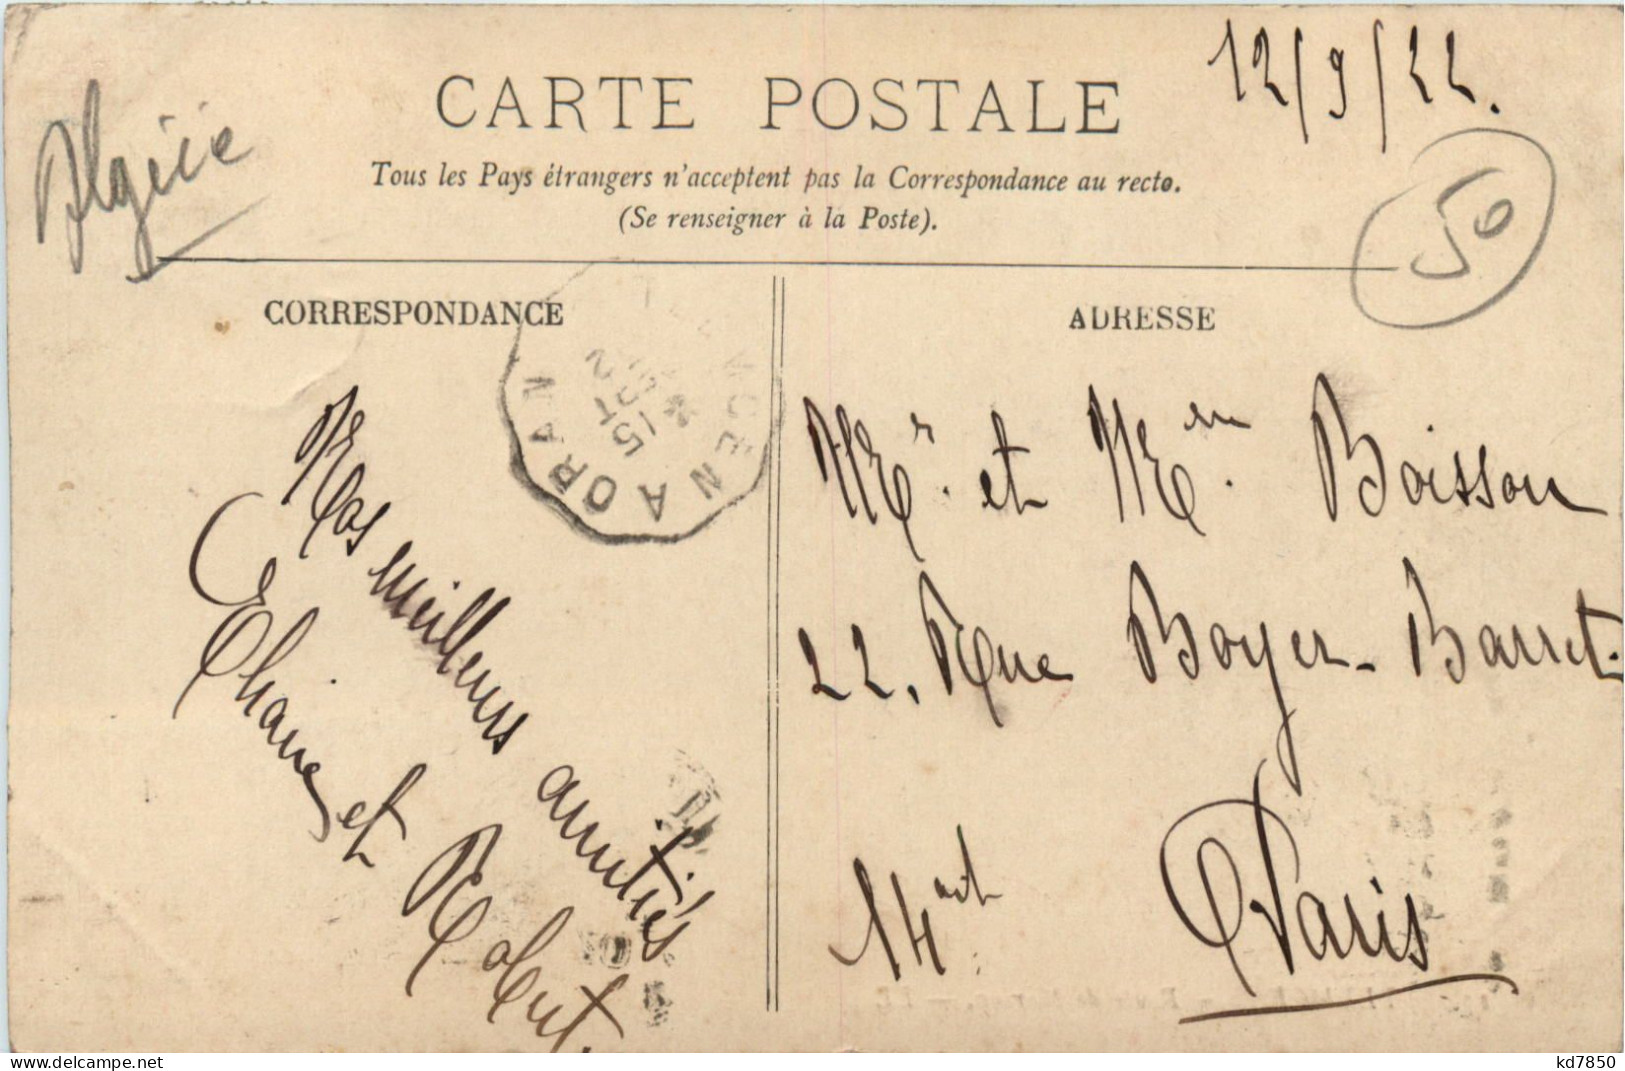 12/9/22.
Algérie
CARTE POSTALE
Tous les Pays étrangers n'acceptent pas la Correspondance au recto.
(Se renseigner à la Poste).
50
CORRESPONDANCE
ADRESSE
A ORAN
15
Nos meilleurs amitiés
et Robert.
Mr. et Mme. Boisson
22, Rue Boyer-Barret.
14 art.
Paris
www.delcampe.net
kd7850